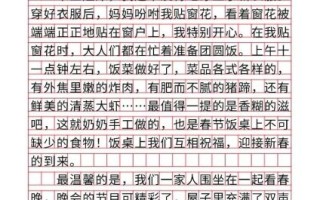 穿好衣服后，妈妈吩咐我贴窗花，看着窗花被
端端正正地贴在窗户上，我特别开心。在我贴
窗花时，大人们都在忙着准备团圆饭。上午十
一点钟左右，饭菜做好了，菜品各式各样的，
有外焦里嫩的炸肉，有肥而不腻的猪蹄，还有
鲜美的清蒸大虾……最值得一提的是香糊的滋
吧，这就奶奶手工做的，也是春节饭桌上不可
缺少的食物！饭桌上我们互相祝福，迎接新春
的到来。
最温馨的是，我们一家人围坐在一起看春
晚，晚会的节目可精彩了，屋子里充满了欢声